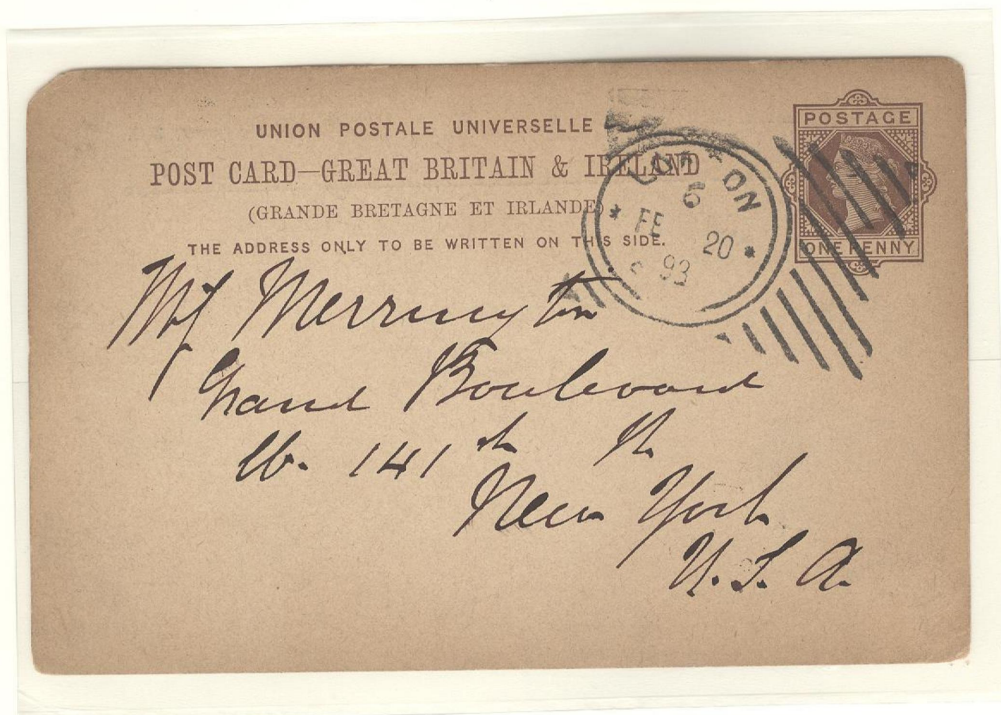 UNION POSTALE UNIVERSELLE
POST CARD—GREAT BRITAIN & IRELAND
(GRANDE BRETAGNE ET IRLANDE)
THE ADDRESS ONLY TO BE WRITTEN ON THIS SIDE.
POSTAGE
ONE PENNY
6
FE 20
93
Miſs Merrington
Grand Boulevard
W. 141 st St
New York
U.S.A.